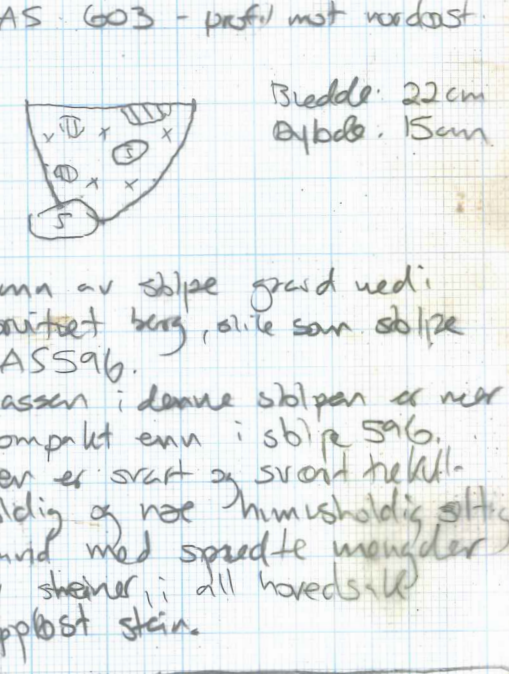 AS 603 - profil mot nordøst.
Bredde: 22cm
Dybde: 15cm
S
S
mn av stolpe gravd nedi
orvitret berg, slik som stolpe
AS596.
assen i denne stolpen er mer
ompakt enn i stolpe 596.
en er svart og svært trekull-
ldig og noe humusholdig siltig
and med spredte mengder
steiner, i all hovedsak
ppløst stein.